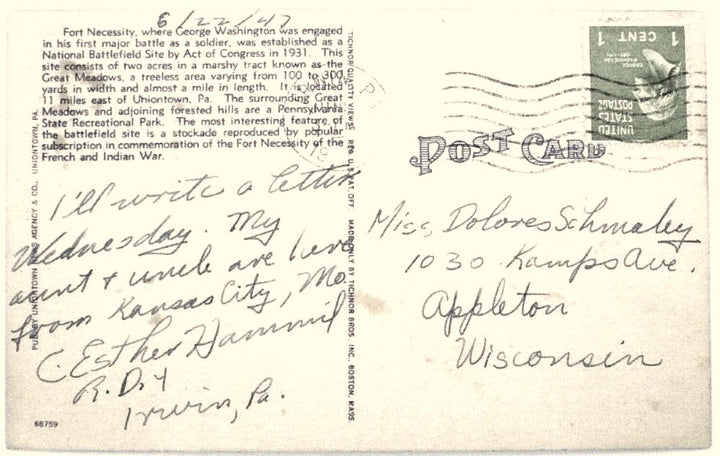 6/22/47
Fort Necessity, where George Washington was engaged
in his first major battle as a soldier, was established as a
National Battlefield Site by Act of Congress in 1931. This
site consists of two acres in a marshy tract known as the
Great Meadows, a treeless area varying from 100 to 300
yards in width and almost a mile in length. It is located
11 miles east of Uniontown, Pa. The surrounding Great
Meadows and adjoining forested hills are a Pennsylvania
State Recreational Park. The most interesting feature of
the battlefield site is a stockade reproduced by popular
subscription in commemoration of the Fort Necessity of the
French and Indian War.
I'll write a letter
Wednesday. My
aunt & uncle are here
from Kansas City, Mo.
C. Esther Hammil
R.D.4
Irwin, Pa.
68759
PUB. BY UNIONTOWN NEWS AGENCY & CO., UNIONTOWN, PA.
TICHNOR QUALITY VIEWS REG. U.S. PAT. OFF. MADE ONLY BY TICHNOR BROS. INC., BOSTON, MASS
POST CARD
UNITED
STATES
POSTAGE
1 CENT 1
Miss, Dolores Schmaley
1030 Kamps Ave.
Appleton
Wisconsin